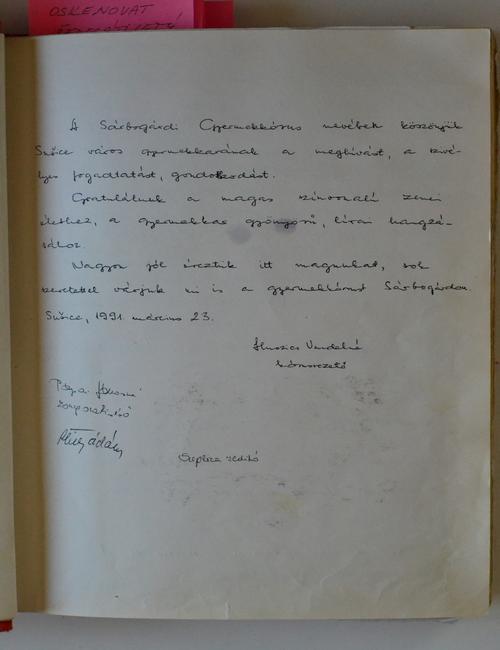 OSKENOVAT
A Sárbogárdi Gyermekkórus nevében köszönjük
Sušice város gyermekkarának a meghívást, a szívé-
lyes fogadtatást, gondoskodást.
Gratulálunk a magas színvonalú zenei
élethez, a gyermekkar gyönyörű, lírai hangzá-
sához.
Nagyon jól éreztük itt magunkat, sok
szeretettel várjuk mi is a gyermekkórust Sárbogárdon.
Sušice, 1991. március 23.
kórusvezető
zongorakísérő
Ádám